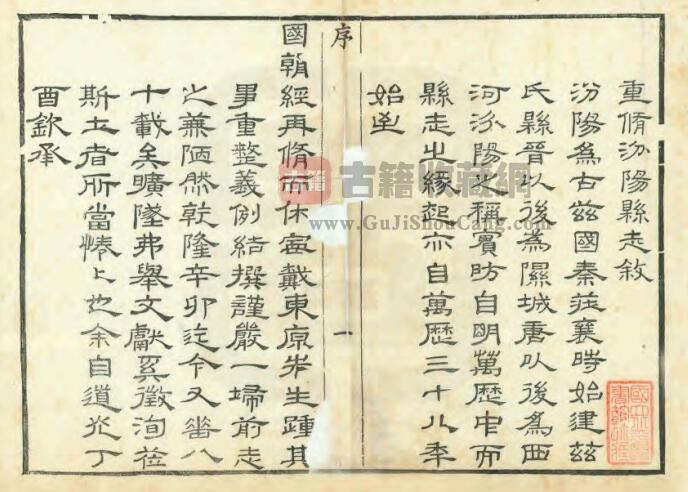 重脩汾陽縣志敘
汾陽為古兹國秦莊襄時始建兹
氏縣晉以後為隰城唐以後為西
河汾陽之稱實昉自明萬歷中而
縣志之緣起亦自萬歷三十八年
始至
序
一
國朝經再脩而休寧戴東原先生踵其
事重整義例結撰謹嚴一埽前志
之蕪陋然乾隆辛卯迄今又垂八
十載矣曠墜弗舉文獻奚徵洵莅
斯土者所當惓〻也余自道光丁
酉欽承
古籍
古籍收藏網
www.GuJiShouCang.com